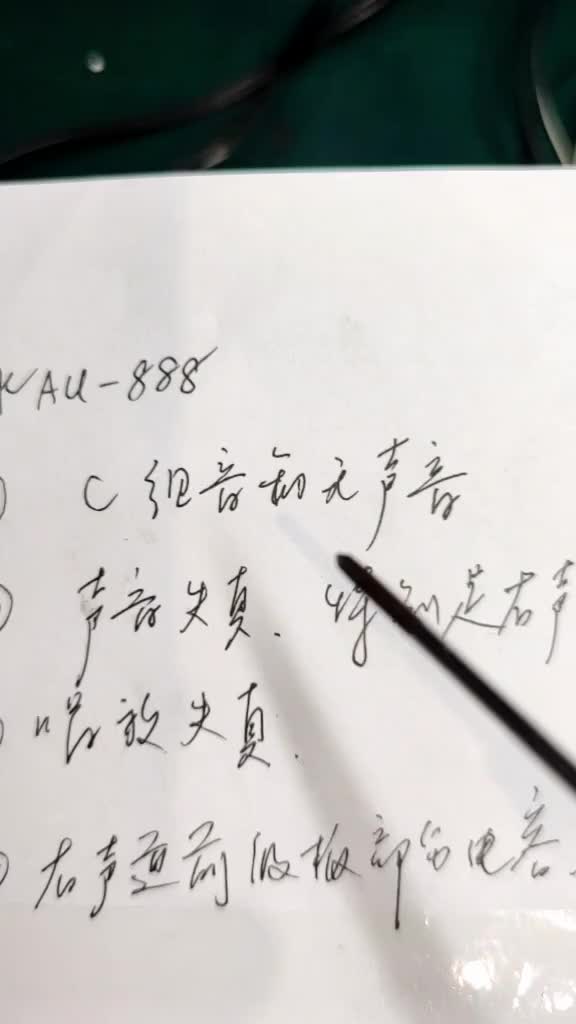 AU-888
C组音箱无声音
声音失真. 特别是右声
唱放失真.
右声道前级板部分电容